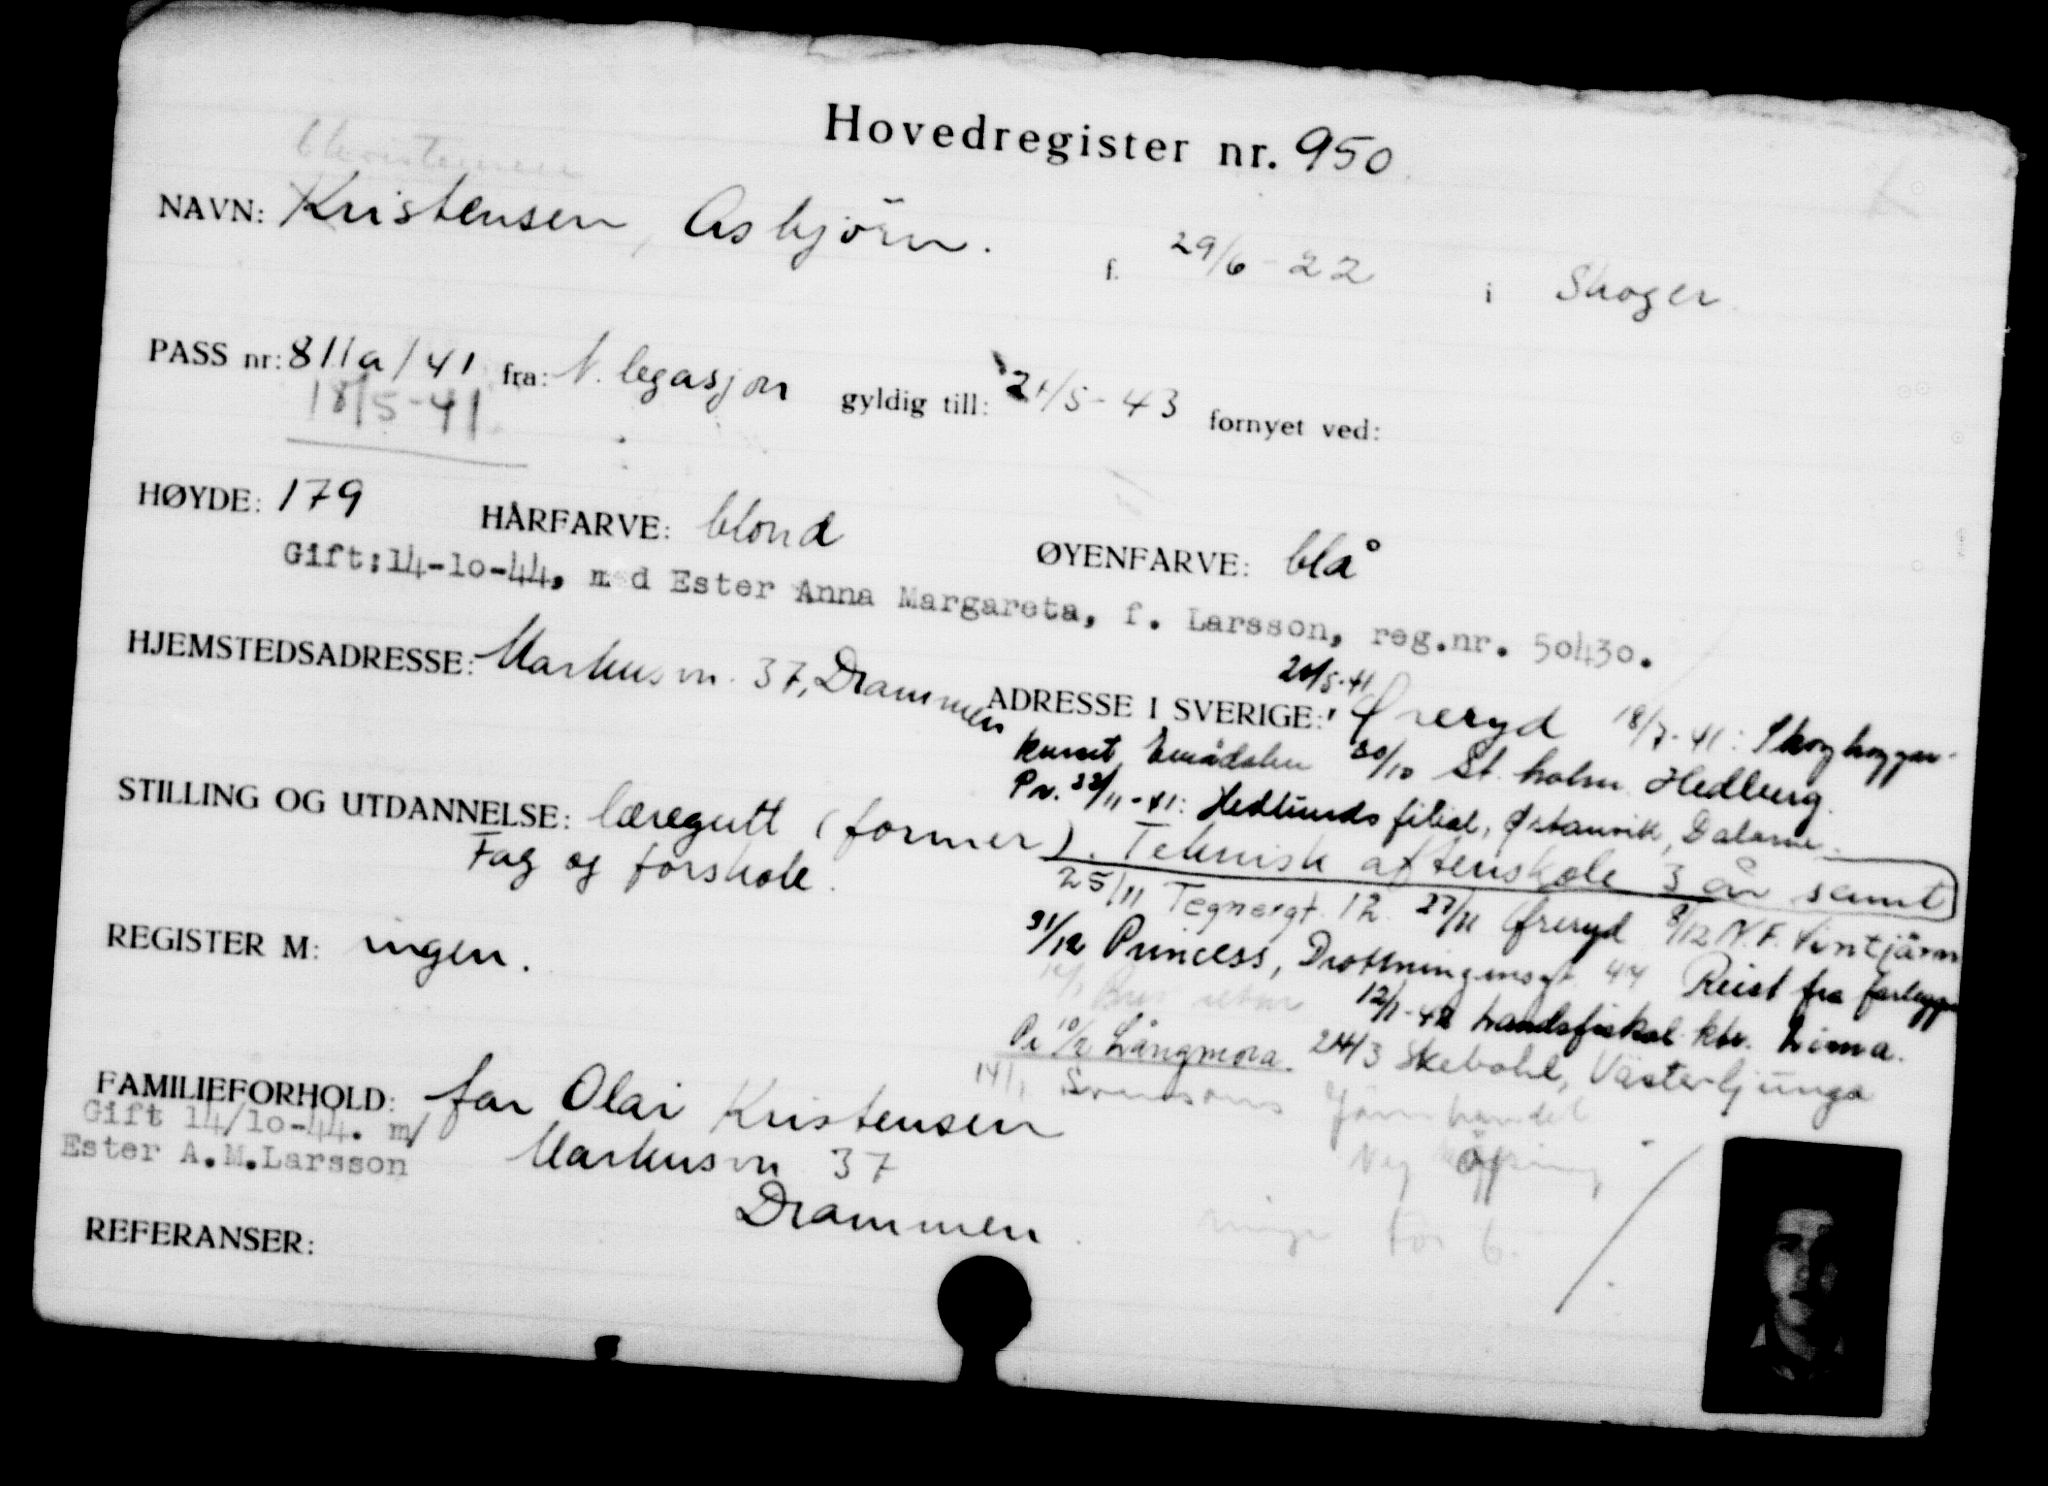 Hovedregister nr. 950
Christensen
NAVN: Kristensen, Asbjørn. f. 29/6-22 i Skoger.
PASS nr: 811a/41 fra: N. legasjon gyldig till: 21/5-43 fornyet ved:
18/5-41.
HØYDE: 179 HÅRFARVE: blond ØYENFARVE: blå
Gift:14-10-44, med Ester Anna Margareta, f. Larsson, reg.nr. 50430.
HJEMSTEDSADRESSE: Markusvn. 37, Drammen
ADRESSE I SVERIGE: 20/5-41 Øreryd 18/7-41: Skoghogger-
kurset, Emådalen 30/10 St.holm Hedberg.
Pr. 22/11-41: Hedlunds filial, Østanvik, Dalarne.
STILLING OG UTDANNELSE: læregutt (former). Teknisk aftenskole 3 år samt
Fag og forskole.
25/11 Tegnergt. 12. 27/11 Øreryd 8/12 N.F. Lintjärn
31/12 Princess, Drottninggt. 44 Reist fra
12/1-42 Landsfiskal ktr. Lima.
Pr 10/2 Långmora. 24/3 Skebohl, Västerljunga
14/1 Svensons Järnhandel
Nykøping
for 6.
REGISTER M: ingen.
FAMILIEFORHOLD: far Olai Kristensen
Markusvn 37
Drammen
Gift 14/10-44. m/
Ester A.M.Larsson
REFERANSER: